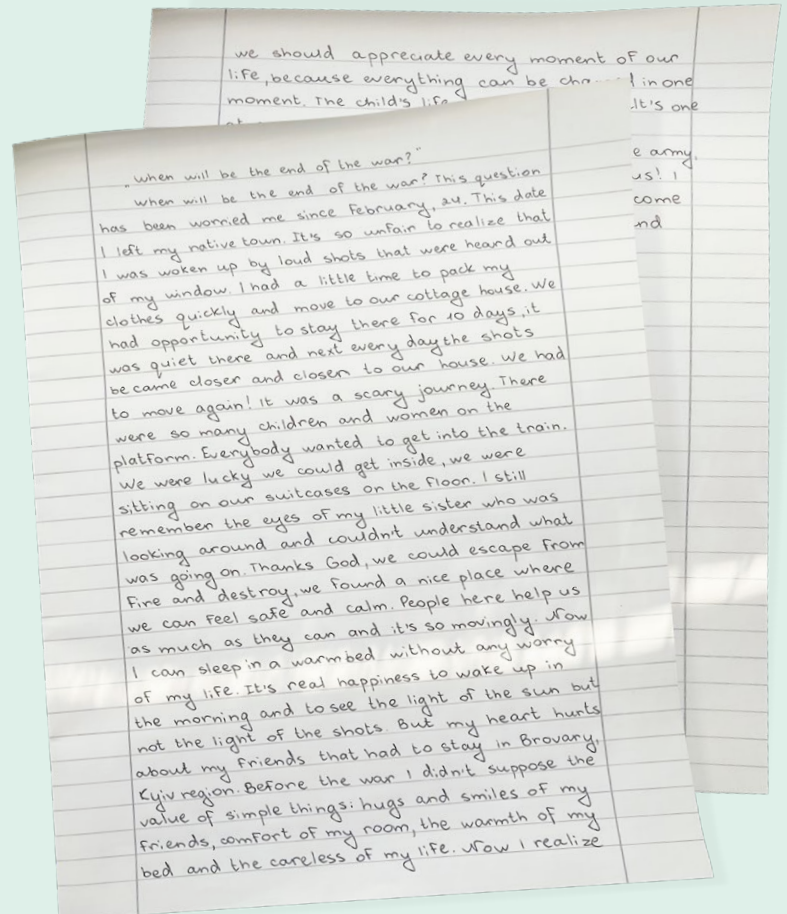 „When will be the end of the war?"
When will be the end of the war? This question
has been worried me since February, 24. This date
I left my native town. It's so unfair to realize that
I was woken up by loud shots that were heard out
of my window. I had a little time to pack my
clothes quickly and move to our cottage house. We
had opportunity to stay there for 10 days, it
was quiet there and next every day the shots
became closer and closer to our house. We had
to move again! It was a scary journey. There
were so many children and women on the
platform. Everybody wanted to get into the train.
We were lucky we could get inside, we were
sitting on our suitcases on the floor. I still
remember the eyes of my little sister who was
looking around and couldn't understand what
was going on. Thanks God, we could escape from
fire and destroy, we found a nice place where
we can feel safe and calm. People here help us
as much as they can and it's so movingly. Now
I can sleep in a warm bed without any worry
of my life. It's real happiness to wake up in
the morning and to see the light of the sun but
not the light of the shots. But my heart hurts
about my friends that had to stay in Brovary,
Kyiv region. Before the war I didn't suppose the
value of simple things: hugs and smiles of my
friends, comfort of my room, the warmth of my
bed and the careless of my life. Now I realize
we should appreciate every moment of our
life, because everything can be in one
moment. The child's It's one
army.
us! I
come